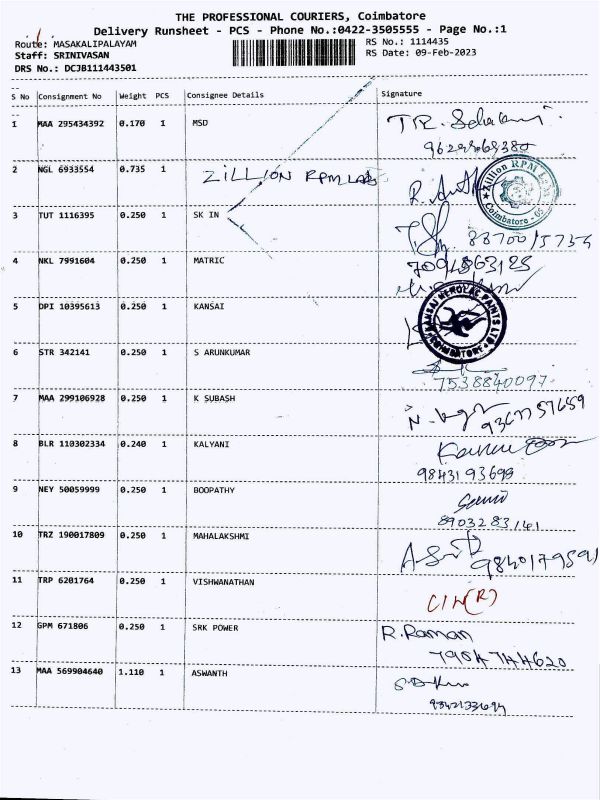 THE PROFESSIONAL COURIERS, Coimbatore
Delivery Runsheet - PCS - Phone No.:0422-3505555 - Page No.:1
Route: MASAKALIPALAYAM
RS No.: 1114435
Staff: SRINIVASAN
RS Date: 09-Feb-2023
DRS No.: DCJB111443501
S No Consignment No Weight PCS Consignee Details Signature
1 MAA 295434392 0.170 1 MSD
2 NGL 6933554 0.735 1 ZILLION RPM LABS
Zillion RPM
Coimbatore
3 TUT 1116395 0.250 1 SK IN
4 NKL 7991604 0.250 1 MATRIC
5 DPI 10395613 0.250 1 KANSAI
KANSAI NEROLAC PAINTS LTD
COIMBATORE
6 STR 342141 0.250 1 S ARUNKUMAR
7538840097
7 MAA 299106928 0.250 1 K SUBASH
8 BLR 110302334 0.240 1 KALYANI
9843193699
9 NEY 50059999 0.250 1 BOOPATHY
8903283141
10 TRZ 190017809 0.250 1 MAHALAKSHMI
9840179591
11 TRP 6201764 0.250 1 VISHWANATHAN
12 GPM 671806 0.250 1 SRK POWER R.Raman
7904744620
13 MAA 569904640 1.110 1 ASWANTH